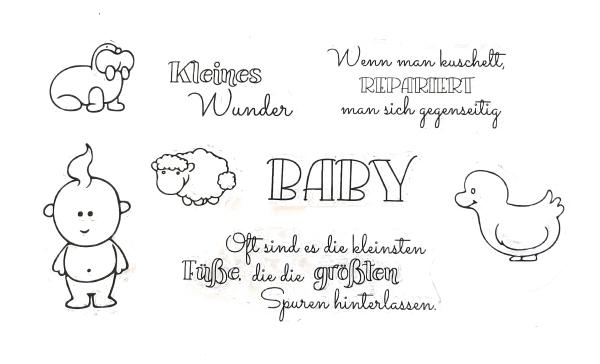 Kleines
Wunder
Wenn man kuschelt,
REPARIERT
man sich gegenseitig
BABY
Oft sind es die kleinsten
Füße, die die größten
Spuren hinterlassen.